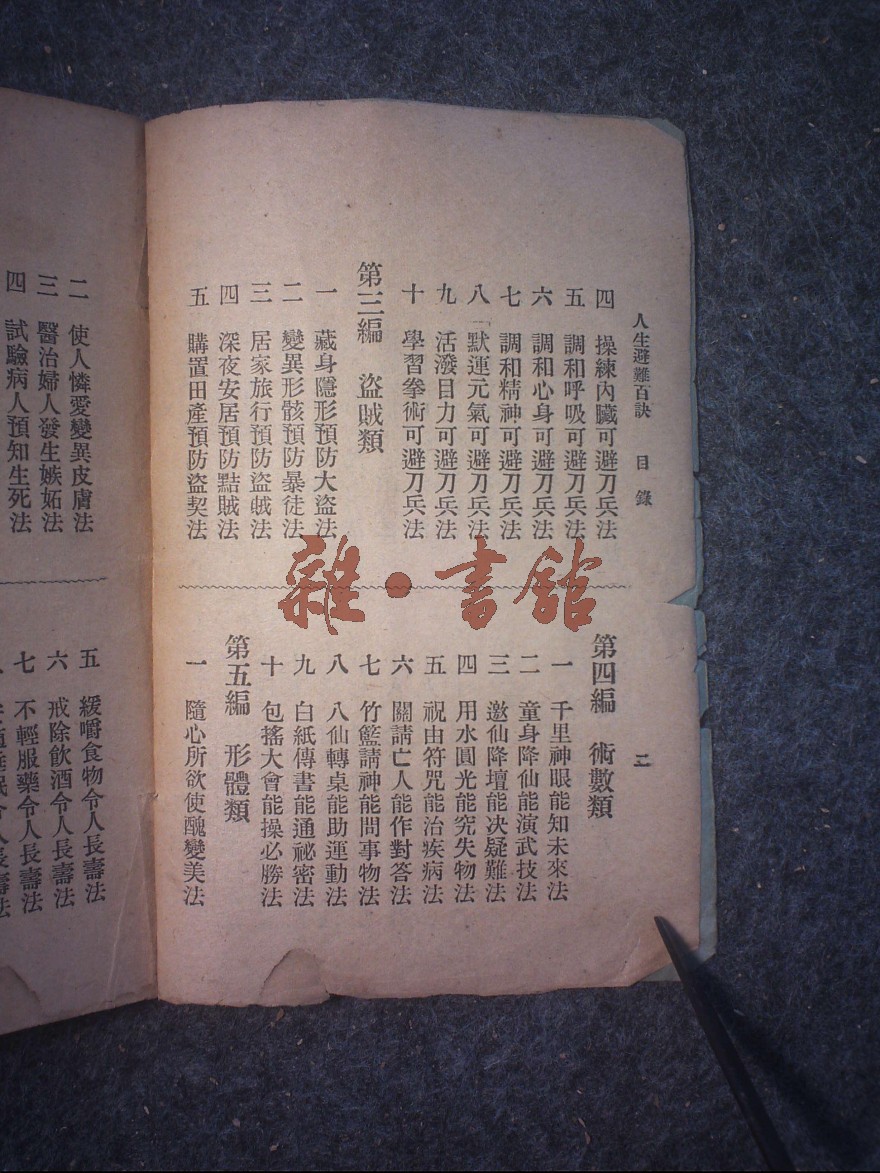 人生避難百訣 目錄 二
四 操練內臟可避刀兵法
五 調和呼吸可避刀兵法
六 調和心身可避刀兵法
七 調和精神可避刀兵法
八 默運元氣可避刀兵法
九 活潑目力可避刀兵法
十 學習拳術可避刀兵法
第三編 盜賊類
一 藏身隱形預防大盜法
二 變異形骸預防暴徒法
三 居家旅行預防盜賊法
四 深夜安居預防點賊法
五 購置田產預防盜契法
第四編 術數類
一 千里神眼能知未來法
二 童身降仙能演武技法
三 邀仙降壇能决疑難法
四 用水圓光能究失物法
五 祝由符咒能治疾病法
六 關請亡人能作對答法
七 竹籃請神能問事物法
八 八仙轉桌能助運動法
九 白紙傳書能通祕密法
十 包搖大會能操必勝法
第五編 形體類
一 隨心所欲使醜變美法
二 使人憐愛變異皮膚法
三 醫治婦人發生嫉妬法
四 試驗病人預知生死法
五 緩嚼食物令人長壽法
六 戒除飲酒令人長壽法
七 不輕服藥令人長壽法
雜·書館